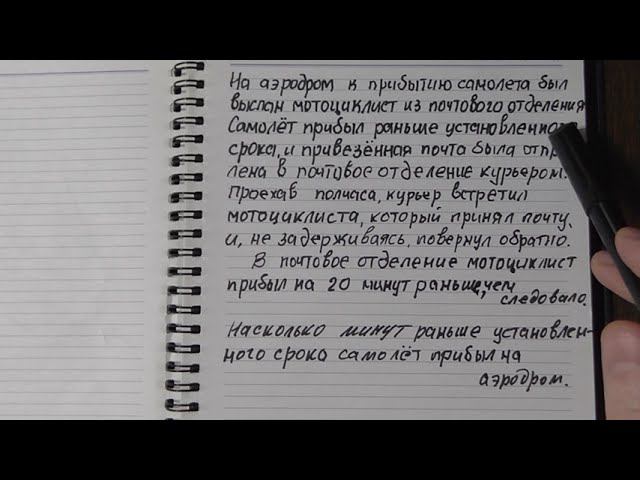 На аэродром к прибытию самолета был
выслан мотоциклист из почтового отделения
Самолёт прибыл раньше установленного
срока, и привезённая почта была отпра
лена в почтовое отделение курьером.
Проехав полчаса, курьер встретил
мотоциклиста, который принял почту,
и, не задерживаясь, повернул обратно.
В почтовое отделение мотоциклист
прибыл на 20 минут раньше, чем
следовало.
Насколько минут раньше установлен-
ного срока самолёт прибыл на
аэродром.